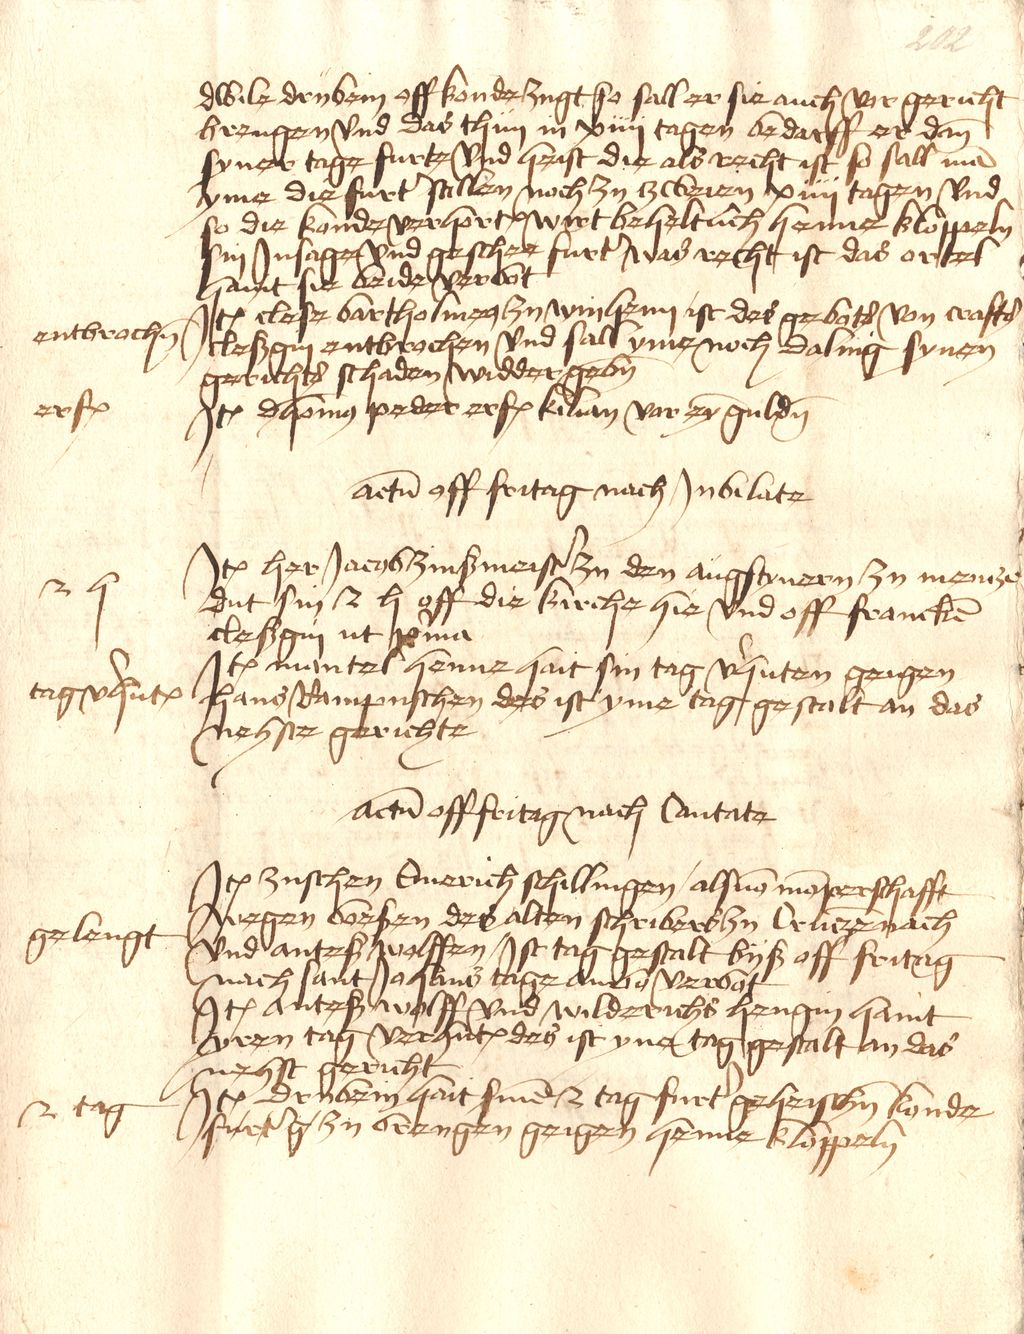 202
dwile drubein off konde zugt so sall er sie auch vor gericht
brengen und das thun in xiiii tagen bedarff er dan̄
syner tage furt͛ und heist die als recht ist so sall mā
yme die furt͛ stillen noch zu zweien xiiii tagen und
so die konde verhort wirt beheltlich henne kloppeln̄
sin Insage und geschee furt͛ was recht ist das ortel
haint sie beide verbot
entbrochin̄
Itꝫ clese bartholmeꝰ zu winheim ist des gebots von crafts
cleßgin entbrochen und sall yme noch daling synen
gerichts schaden widder gebin̄
erfꝫ
Itꝫ dhomꝰ peder erfꝫ kilian vor eȳ guldn̄
Actū off fritag nach Jubilate
2 h
Itꝫ her Jacob zinßmeist͛ zu den augstinern zu mentze
dut sin 2 h off die kirche hie und off francken̄
cleßgin ut pͥma
tag v͛hutꝫ
Itꝫ mantel henne hait sin tag v͛huten geigen
hans Rampuschen des ist yme tag gestalt an das
nehste gerichte
Actū off fritag nach Cantate
gelengt
Itꝫ zuschen Emerich schillingen als vō mōperschafft
wegen weßen des alten schribers zu Crutzenach
und anteß wolffen Ist tag gestalt biß off fritag
nach sant Johans tage ambo verbot
Itꝫ anteß wolff und wilderichs hengin haint
yren tag verhutꝫ des ist yne tag gestalt an das
nehst gericht
2 tag
Itꝫ drubein hait sinē 2 tag furt͛ geheischin̄ konde
furt͛ zu brengen geigen henne kloppeln̄